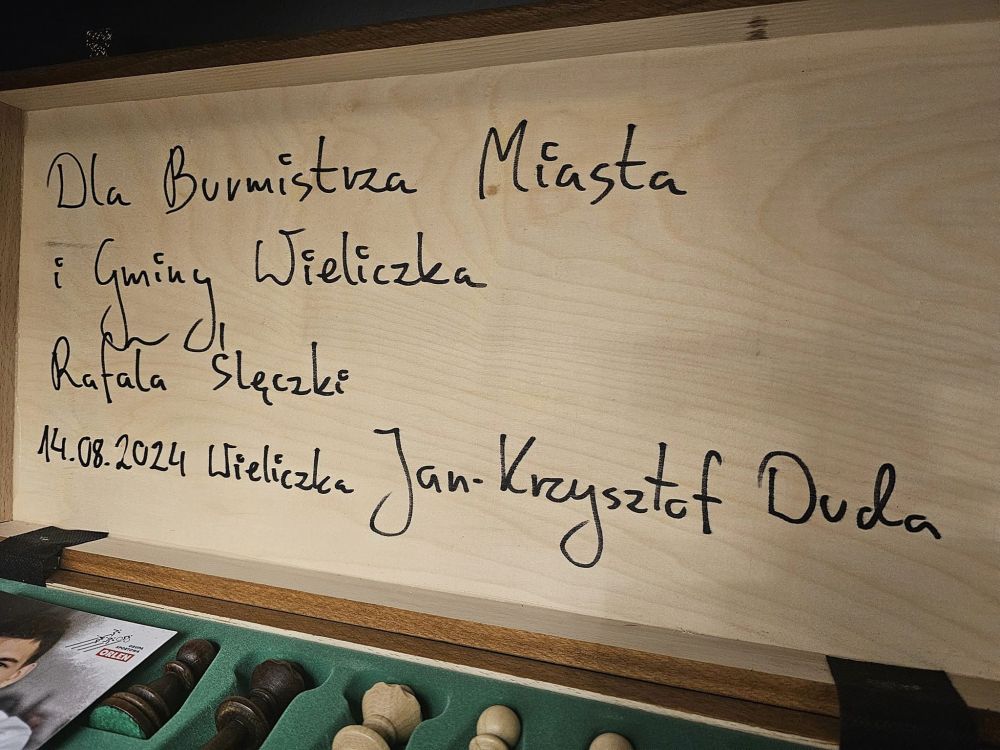 Dla Burmistrza Miasta
i Gminy Wieliczka
Rafała Ślęczki
14.08.2024 Wieliczka Jan-Krzysztof Duda
GRUPA
SPORTOWA
ORLEN